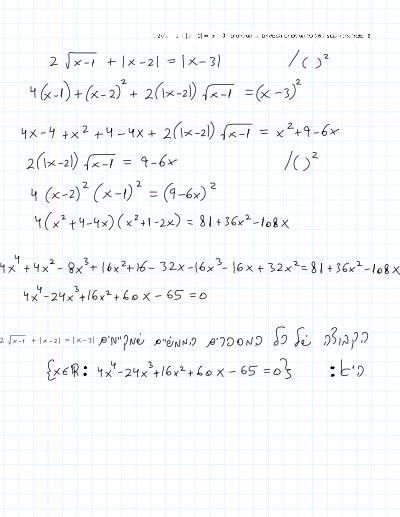 2√x-1 + |x-2| = |x-3| /( )²
4(x-1)+(x-2)² + 2(|x-2|)√x-1 =(x-3)²
4x-4+x²+4-4x+2(|x-2|)√x-1 = x²+9-6x
2(|x-2|)√x-1 = 9-6x /( )²
4(x-2)²(x-1)² = (9-6x)²
4(x²+4-4x)(x²+1-2x) = 81+36x²-108x
4x⁴+4x²-8x³+16x²+16-32x-16x³-16x+32x²=81+36x²-108x
4x⁴-24x³+16x²+60x-65=0
הקבוצה של כל המספרים הממשיים שמקיימים 2√x-1 + |x-2| = |x-3|
היא: {x∈R: 4x⁴-24x³+16x²+60x-65=0}